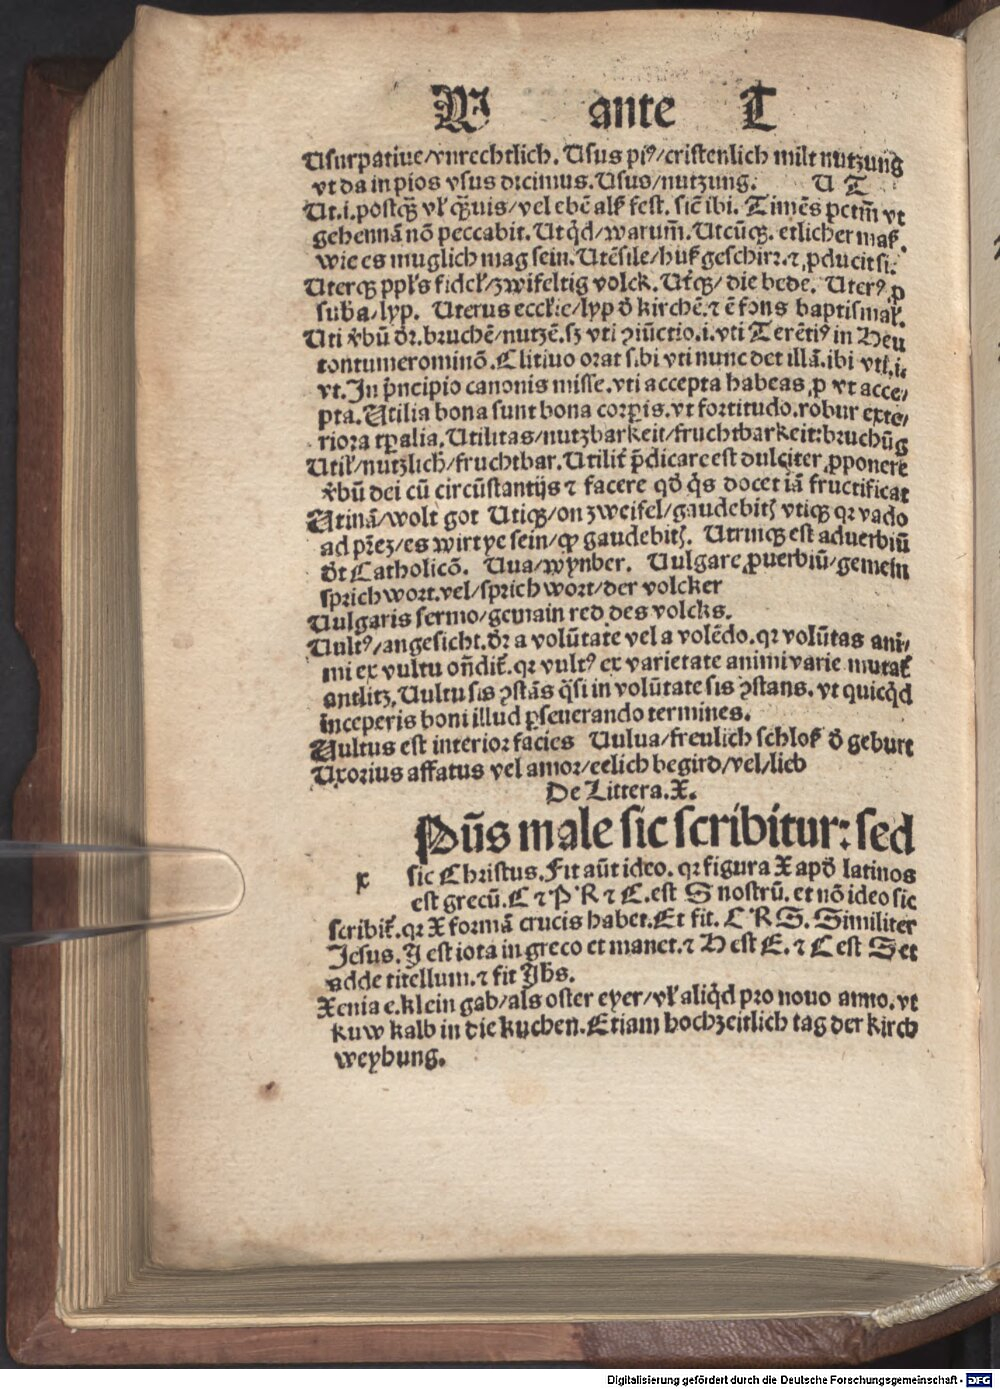 W ante T
Usurpatiue/vnrechtlich. Usus piꝰ/cristenlich milt nutzung
vt da in pios vsus dicimus. Usus/nutzung. U T
Ut.i.postqȝ vel quis/vel ebē als fest. sic ibi. Timēs
gehennā nō peccabit. Utqd/warum̄. Utcūqȝ. etlicher maß.
wie es muglich mag sein. Utēsile/huß geschirr.
Uterqȝ fidel/zwifeltig volck. /die bede. Uterꝰ
/lyp. Uterus /lyp kirchē. ⁊ ē fons baptismal.
Uti bruchē/nutzē. vti ꝯiūctio.i.vti Terētiꝰ in Heu
tontumerominō. Clitiuo orat sibi vti nunc det illā.ibi
vt. In pͥncipio canonis misse. vti accepta habeas vt acce/
pta. Utilia bona sunt bona corꝑis. vt fortitudo. robur exte/
riora tꝑalia. Utilitas/nutzbarkeit/fruchtbarkeit:bruchūg
Util/nutzlich/fruchtbar. Utilit p̄dicare est dulciter ꝓponere
dei cū circūstantijs ⁊ facere qd qͥs docet iā fructificat
Utinā/wolt got Utiqȝ/on zweifel/gaudebitꝭ vtiqȝ qꝛ vado
ad /es wirt ye sein/ gaudebitꝭ. Utrinqȝ est aduerbiū
Catholicō. Uua/wynber. Uulgare ꝓuerbiū/gemein
sprich wort. vel/sprich wort/der volcker
Uulgaris sermo/gemain red des volcks.
Uultꝰ/angesicht. a volūtate vel a volēdo. qꝛ volūtas ani/
mi ex vultu . qꝛ vultꝰ ex varietate animi varie mutat
antlitz. Uultu sis ꝯstās qͣsi in volūtate sis ꝯstans. vt quicqd
inceperis boni illud ꝑseuerando termines.
Uultus est interior facies Uulua/freulich schloß geburt
Uxorius affatus vel amor/eelich begird/vel/lieb
De Littera. X.
Pūs male sic scribitur: sed
x sic Christus. Fit aūt ideo. qꝛ figura X apd latinos
est grecū. C ⁊ P R ⁊ C. est S nostrū. et nō ideo sic
scribit. qꝛ X formā crucis habet. Et fit. C R S. Similiter
Jesus. J est iota in greco et manet. ⁊ H est E. ⁊ C est S et
adde titellum. ⁊ fit Jhs.
Xenia e. klein gab/als oster eyer/vel aliqd pro nouo anno. vt
kuw kalb in die kuchen. Etiam hochzeitlich tag der kirch
weyhung.
Digitalisierung gefördert durch die Deutsche Forschungsgemeinschaft - DFG